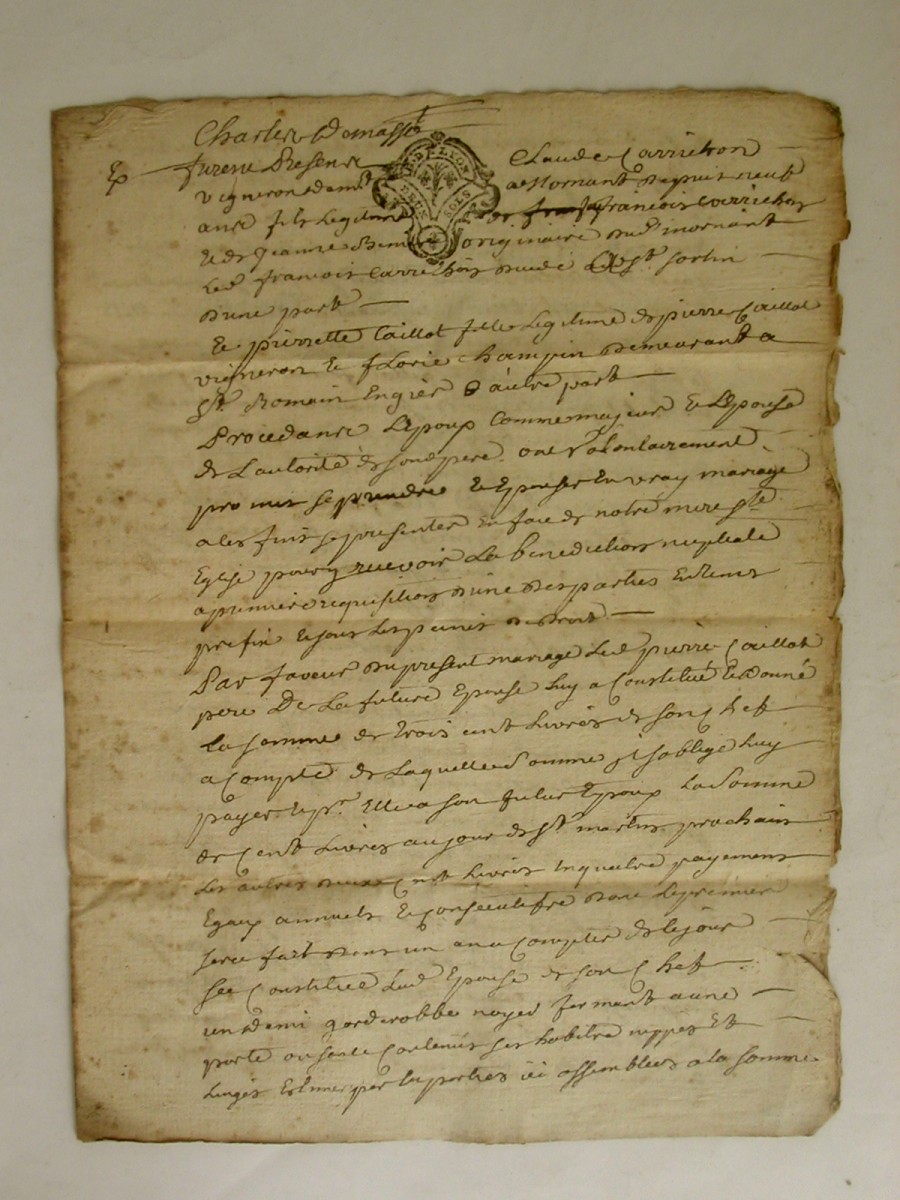 Charles Demasso
Furent Presens Claude Carrichon
vigneron dem.t a Mornant neuf
ans fils Legitime de françois Carrichon
et de Jeanne originaire dud mornant
Led françois Carrichon St. Sorlin
d'une part
Et pierrette Caillot fille Legitime de pierre Caillot
vigneron et fLorie Champin demeurant a
St. Romain En gier d'autre part
Procedans L'Epoux Comme majeur Et L'Epouse
de L'autorité de sond pere ont volontairement
promis se prendre et Epouser En vray mariage
a les fins se presenter En face de notre mere Ste
Eglise pour y recevoir La benediction nuptiale
a premiere requisition d'une des parties
prefix Et sous Les peines de droit
Par faveur du present mariage Led pierre Caillot
pere De La future Epouse Luy a Constitué Et donné
La somme de trois cent Livres de son Chef
a Compte de Laquelle somme il s'oblige Luy
payer Et a son futur Epoux La Somme
de Cent Livres au jour de St. martin prochain
Les autres deux Cent Livres En quatre payement
Egaux annuels et Consecutifs dont Le premier
sera fait dans un an a Compter de Ce jour
Se Constitue Lad Epouse de son Chef
un demi garderobbe noyer fermant a une
porte Contenus ses habits nippes Et
Linges Estimes par Les parties ici assemblées a La somme
DE LION
DEUX SOLS